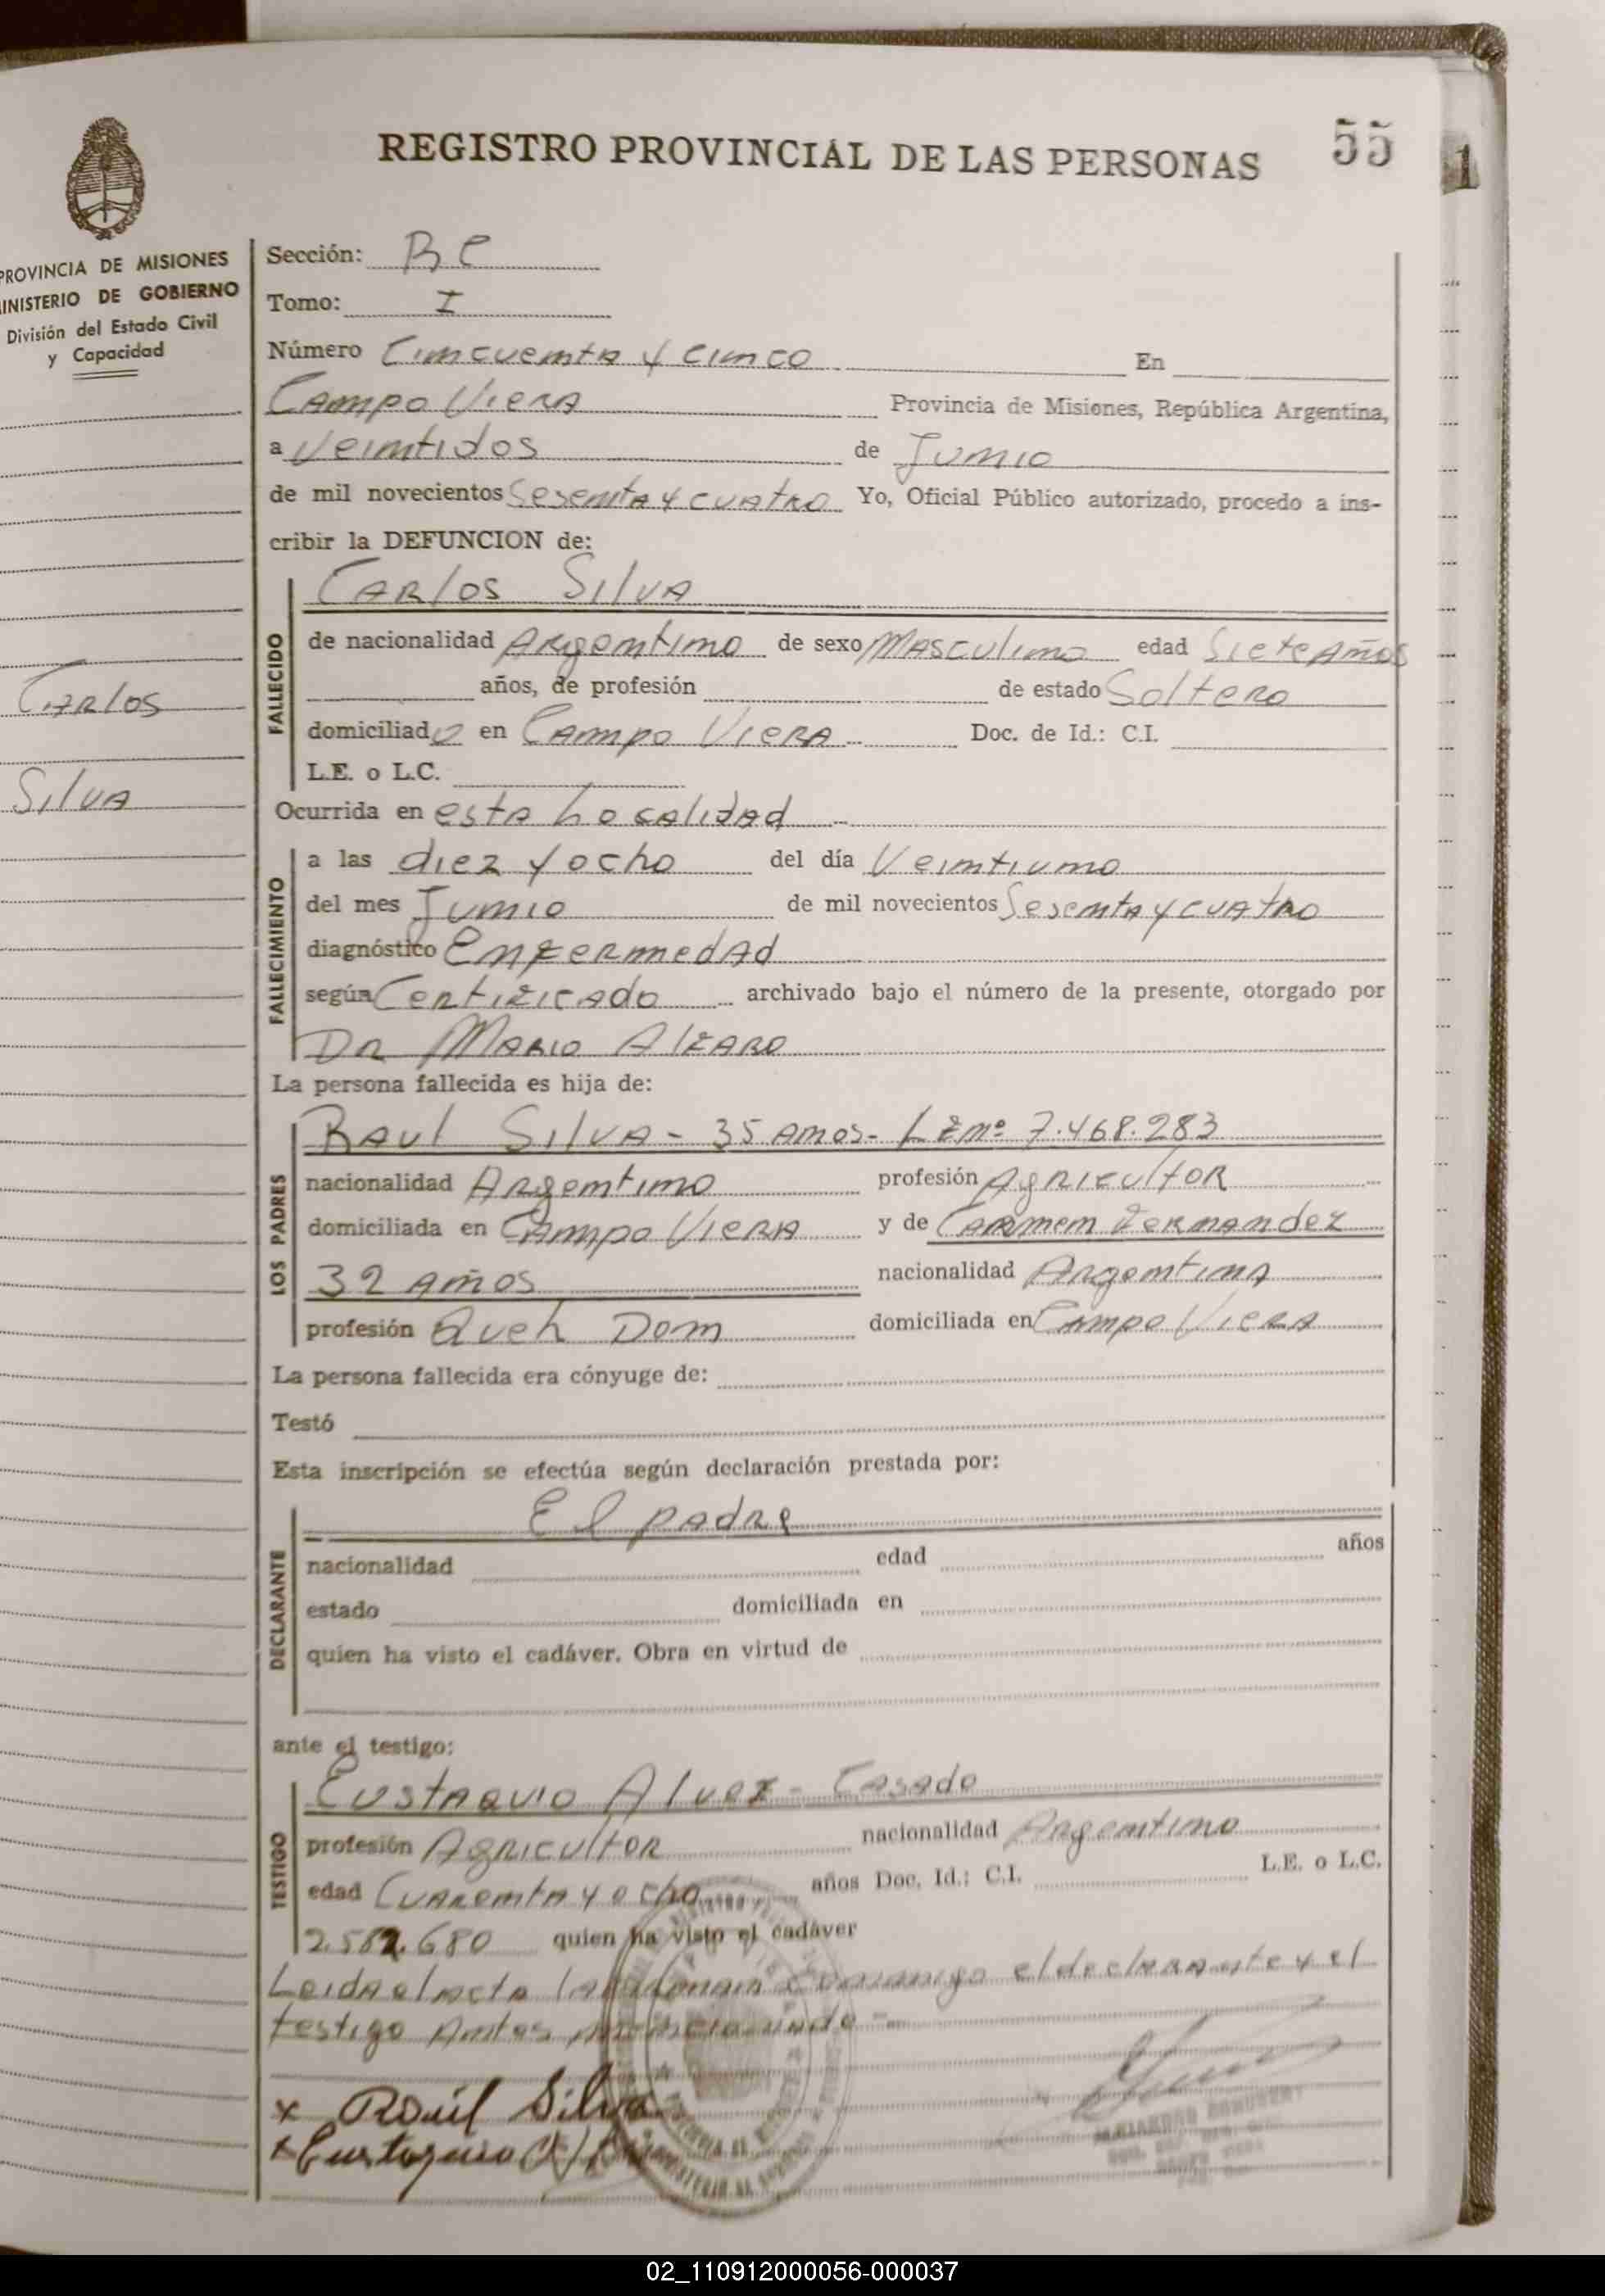 REGISTRO PROVINCIAL DE LAS PERSONAS
55
1
PROVINCIA DE MISIONES
MINISTERIO DE GOBIERNO
División del Estado Civil
y Capacidad
Carlos
Silva
Sección:
Tomo: I
Número Cincuenta y cinco En
Campo Viera Provincia de Misiones, República Argentina,
a Veintidos de Junio
de mil novecientos Sesenta y cuatro Yo, Oficial Público autorizado, procedo a ins-
cribir la DEFUNCION de:
Carlos Silva
FALLECIDO
de nacionalidad Argentino de sexo Masculino edad Siete Años
años, de profesión de estado Soltero
domiciliado en Campo Viera Doc. de Id.: C.I.
L.E. o L.C.
Ocurrida en esta Localidad
FALLECIMIENTO
a las diez y ocho del día Veintiuno
del mes Junio de mil novecientos Sesenta y cuatro
diagnóstico Enfermedad
según Certificado archivado bajo el número de la presente, otorgado por
Dr Mario Alfaro
La persona fallecida es hija de:
LOS PADRES
Raul Silva - 35 años - LE nº 7.468.283
nacionalidad Argentino profesión Agricultor
domiciliada en Campo Viera y de Carmen Fernandez
32 años nacionalidad Argentina
profesión Queh Dom domiciliada en Campo Viera
La persona fallecida era cónyuge de:
Testó
Esta inscripción se efectúa según declaración prestada por:
El padre
DECLARANTE
nacionalidad edad años
estado domiciliada en
quien ha visto el cadáver. Obra en virtud de
ante el testigo:
TESTIGO
Eustaquio Alvez - Casado
profesión Agricultor nacionalidad Argentino
edad Cuarenta y ocho años Doc. Id.: C.I. L.E. o L.C.
2.582.680 quien ha visto el cadáver
Leida el acta la firman conmigo el declarante y el
testigo antes mencionado -
x Raúl Silva
x Eustaquio
02_110912000056-000037